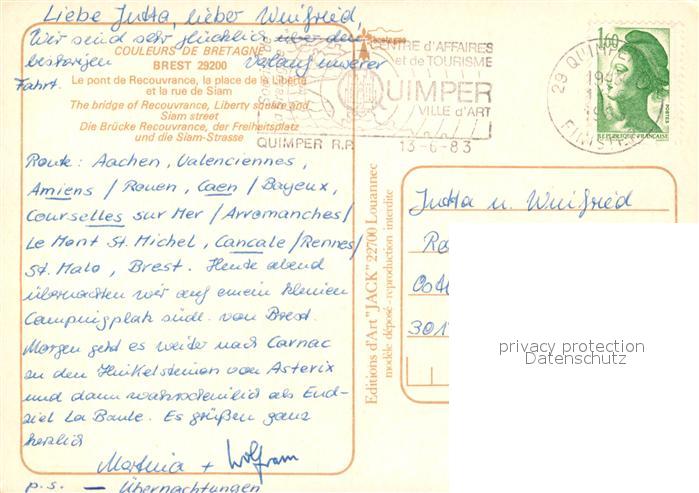 Liebe Jutta, lieber Winfried,
Wir sind sehr glücklich über den
COULEURS DE BRETAGNE
bisherigen Verlauf unserer
BREST 29200
Fahrt.
Le pont de Recouvrance, la place de la Liberté
et la rue de Siam
The bridge of Recouvrance, Liberty square and
Siam street
Die Brücke Recouvrance, der Freiheitsplatz
und die Siam-Strasse
Route: Aachen, Valenciennes,
Amiens / Rouen, Caen / Bayeux,
Courselles sur Mer / Arromanches /
Le Mont St. Michel, Cancale / Rennes /
St. Malo, Brest. Heute abend
übernachten wir auf einem kleinen
Campingplatz südl. von Brest.
Morgen geht es weiter nach Carnac
zu den Hinkelsteinen von Asterix
und dann wahrscheinlich als End-
ziel La Baule. Es grüßen ganz
herzlich
Martina + Wolfram
p.s. — Übernachtungen
CENTRE d'AFFAIRES
et de TOURISME
QUIMPER
VILLE d'ART
QUIMPER R.P. 13-6-83
29 QUIMPER
FINISTÈRE
1,60
REPUBLIQUE FRANÇAISE
POSTES
Editions d'Art "JACK" 22700 Louannec
modèle déposé - reproduction interdite
Jutta u. Winfried
301
privacy protection
Datenschutz